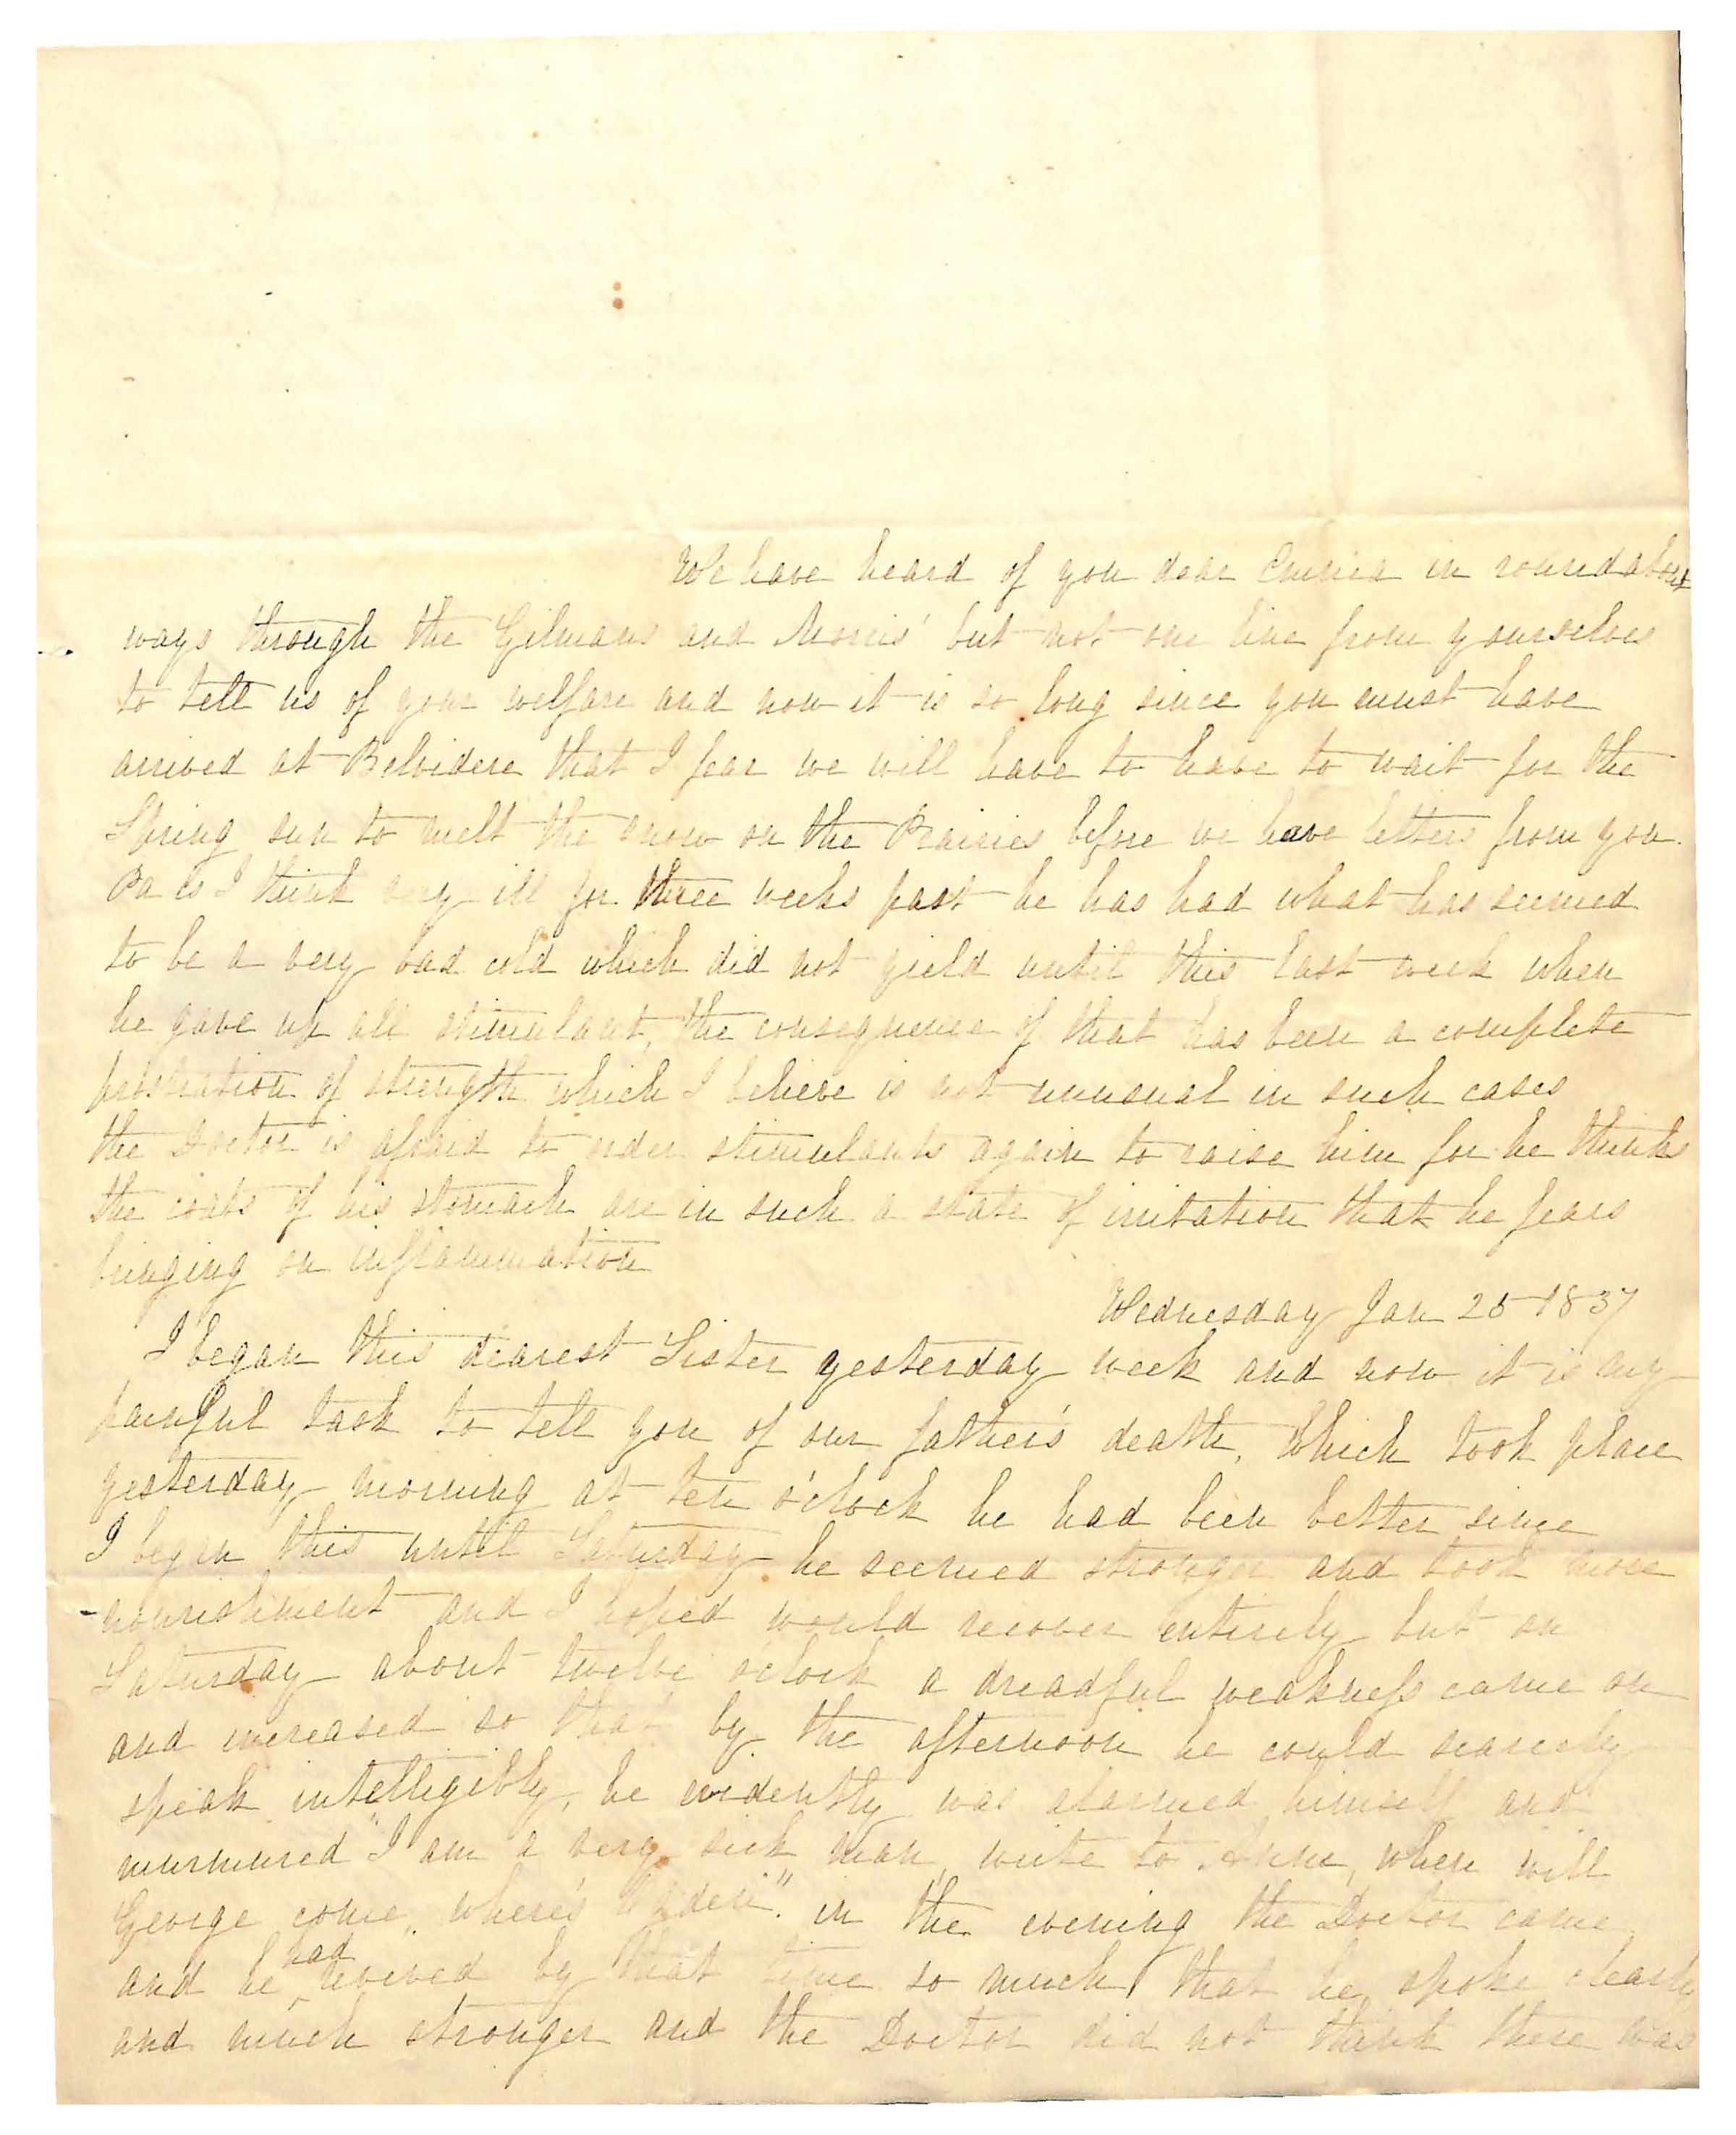 We have heard of you dear Emma in roundabout
ways through the Gilmans and Morris' but not one line from yourselves
to tell us of your welfare and now it is so long since you must have
arrived at Belvidere that I fear we will have to have to wait for the
Spring sun to melt the snow on the Prairies before we have letters from you.
Pa is I think very ill for three weeks past he has had what has seemed
to be a very bad cold which did not yield until this last week when
he gave up all stimulant, the consequence of that has been a complete
prostration of strength which I believe is not unusual in such cases
the Doctor is afraid to order stimulants again to raise him for he thinks
the coats of his stomach are in such a state of irritation that he fears
bringing on inflammation
Wednesday Jan 25 1837
I began this dearest Sister yesterday week and now it is my
painful task to tell you of our father's death, which took place
yesterday morning at ten o'clock he had been better since
I began this until Saturday he seemed stronger and took more
nourishment and I hoped would recover entirely but on
Saturday about twelve o'clock a dreadful weakness came on
and increased so that by the afternoon he could scarcely
speak intelligibly, he evidently was alarmed himself and
murmured "I am a very sick man, write to Anne, when will
George come, where's Ogden". in the evening the Doctor came
and he had revived by that time so much that he spoke clearly
and much stronger and the Doctor did not think there was